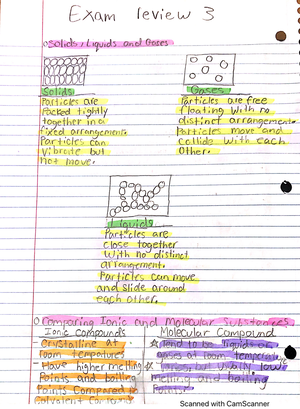 Exam review 3
Solids, Liquids and Gases
Solids
Particles are
Packed tightly
together in a
fixed arrangement.
Particles can
vibrate but
not move.
Gases
Particles are free
floating with no
distinct arrangement.
Particles move and
collide with each
other.
Liquids
Particles are
close together
with no distinct
arrangement.
Particles can move
and slide around
each other.
Comparing Ionic and Molecular Substances
Ionic compounds
Crystalline at
room
Have higher melting
Points and boiling
Points compared to
Molecular Compound
Tend to be liquids or
gases at room
but low
melting and boiling
Points
Scanned with CamScanner